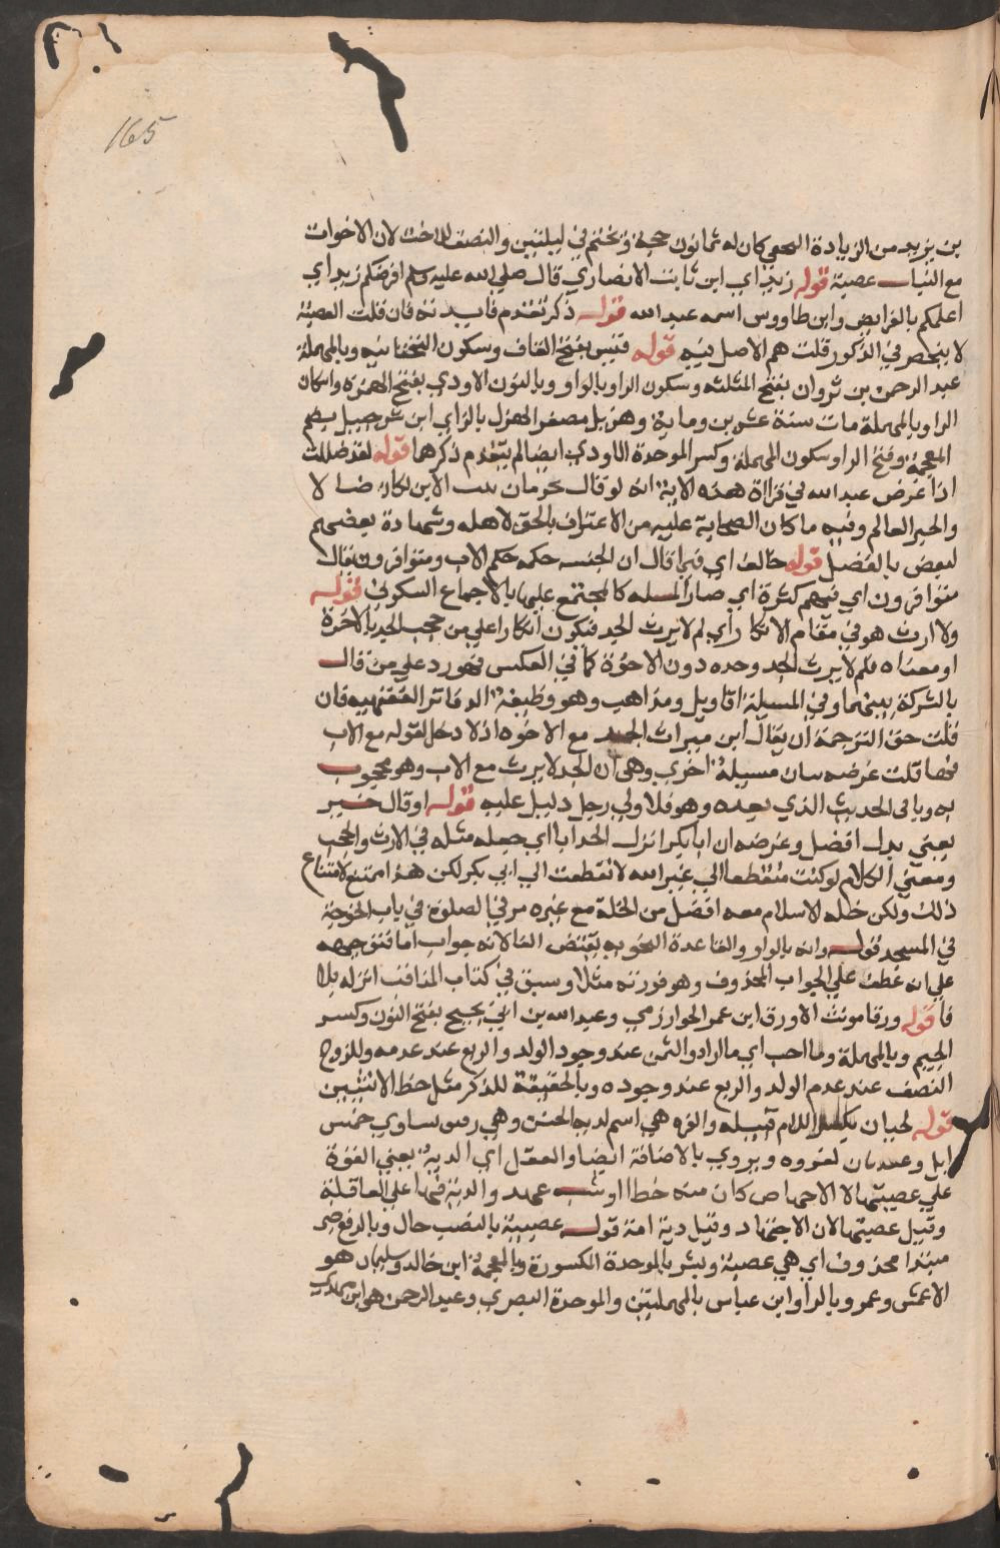 165
بن يزيد من الزيادة النخعي كان له ثمانون حجة ويختم في ليلتين والنصف للاخت لان الاخوات
مع البنات عصبة قوله زيد اي ابن ثابت الانصاري قال صلي الله عليه وسلم افرضكم زيد اي
اعلمكم بالفرايض وابن طاووس اسمه عبد الله قوله ذكر تقدم فايدته فان قلت العصبة
لا ينحصر في الذكور قلت هم الاصل فيه قوله قيس بفتح القاف وسكون التحتانيه وبالمهملة
عبد الرحمن بن ثروان بفتح المثلثه وسكون الرا وبالواو وبالنون الاودي بفتح الهمزه واسكان
الواو بالمهملة مات سنة عشرين وماية وهزيل مصغر الهزل بالزاي ابن شرحبيل بضم
المعجمة وفتح الرا وسكون المهملة وكسر الموحدة الاودي ايضا لم يتقدم ذكرهما قوله لقد ضللت
اذا غرض عبد الله في قراة هذه الاية انه لو قال بحرمان بنت الابن لكان ضالا
والحبر العالم وفيه ما كان الصحابة عليه من الاعتراف بالحق لاهله وشهادة بعضهم
لبعض بالفضل قوله خالف اي فيما قال ان الجد حكمه حكم الاب ومتوافرون يقال
متوافرون اي فيهم كثرة اي صار المسله كالمجتمع عليها بالاجماع السكوتي قوله
ولا ارث هو في مقام الانكار اي لم لا يرث الجد فيكون انكارا علي من حجب الجد بالاخوة
او معناه فلم لا يرث الجد وحده دون الاخوة كما في العكس فهو رد علي من قال
بالشركة بينهما وفي المسيلة اقاويل ومذاهب وهو وظيفة الدفاتر الفقهيه فان
قلت حق الترجمة ان يقال ابن ميراث الجد مع الاخوه اذ لا دخل لقوله مع الاب
فيها قلت غرضه بيان مسيلة اخري وهي ان الجد لا يرث مع الاب وهو محجوب
به وباقي الحديث الذي بعده وهو فلاولي رجل دليل عليه قوله او قال خير
يعني بدل افضل وغرضه ان ابا بكر انزل الجد ابا اي جعله مثله في الارث والحجب
ومعني الكلام لو كنت منقطعا الي غير الله لانقطعت الي ابي بكر لكن هذا ممتنع لامتناع
ذلك ولكن خلة الاسلام معه افضل من الخلة مع غيره مر في الصلوة في باب الخوخة
في المسجد قوله وانه بالواو والقاعدة النحويه يقتضي الفا لانه جواب اما فتوجيهه
علي انه عطف علي الجواب المحذوف وهو فورثه مثلا وسبق في كتاب المناقب انزله بلا
فا قوله ورقا مونث الاورق ابن عمر الخوارزمي وعبد الله بن ابي نجيح بفتح النون وكسر
الجيم وبالمهملة وما احب اي ما اراد والثمن عند وجود الولد والربع عند عدمه وللزوج
النصف عند عدم الولد والربع عند وجوده وبالحقيقة للذكر مثل حظ الانثيين
قوله لحيان بكسر اللام قبيله والغره هي اسم لدية الجنين وهي رقيق تساوي خمس
ابل وعبد بيان لغروه ويروي بالاضافة ايضا والعقل اي الدية يعني الغرة
علي عصبتها لا الاجهاض كان منه خطا او شبه عمد والدية فيها علي العاقلة
وقيل عصبتها لان الاجتهاد وقيل دية امة قوله عصبة بالنصب حال وبالرفع خبر
مبتدا محذوف اي هي عصبة وبشر بالموحدة المكسورة وبالمعجمة ابن خالد وسليمان هو
الاعمش وعمرو بالواو ابن عباس بالمهملتين والموحدة البصري وعبد الرحمن هو ابن